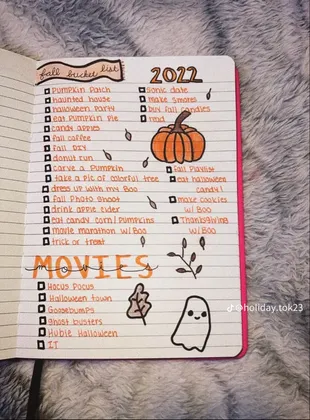 fall bucket list
2022
pumpkin patch
haunted house
halloween party
eat pumpkin pie
candy apples
fall coffee
fall DIY
donut run
carve a pumpkin
take a pic of colorful tree
dress up with my Boo
fall photo shoot
drink apple cider
eat candy corn/pumpkins
movie marathon w/Boo
trick or treat
sonic date
make smores
buy fall candies
fall playlist
eat halloween
candy!
make cookies
w/ Boo
Thanksgiving
w/ Boo
MOVIES
movies
Hocus Pocus
Halloween town
Goosebumps
ghost busters
Hubie Halloween
IT
@holiday.tok23